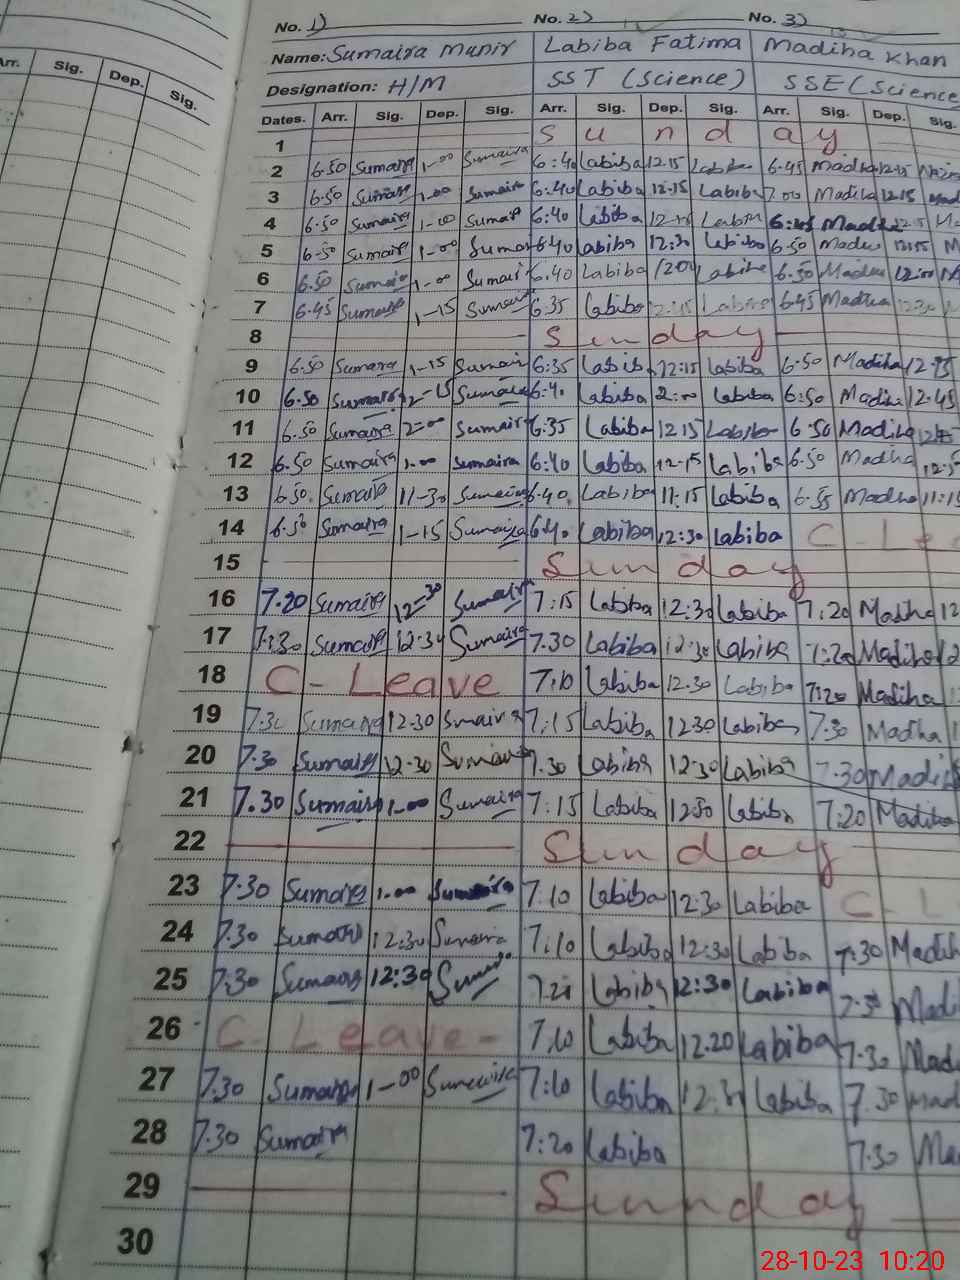 No. 1) No. 2) No. 3)
Name: Sumaira Munir Labiba Fatima Madiha Khan
Designation: H/M SST (Science) SSE (Science
Arr. Sig. Dep. Sig.
Dates. Arr. Sig. Dep. Sig. Arr. Sig. Dep. Sig. Arr. Sig. Dep. Sig.
1 Sunday
2 6.50 Sumaira 1-00 Sumaira 6:40 Labiba 12.15 Labiba 6.45 Madiha 12.15
3 6.50 Sumaira 1-00 Sumaira 6:40 Labiba 12.15 Labiba 7.00 Madiha 12.15 Mad
4 6.50 Sumaira 1-00 Sumaira 6:40 Labiba Labiba 6.45 Madiha
5 6.50 Sumaira 1-00 Sumaira 6.40 Labiba 12:30 Labiba 6.50 Madiha
6 6.50 Sumaira 1-00 Sumaira 6.40 Labiba Labiba 6.50 Madiha
7 6.45 Sumaira 1-15 Sumaira 6.35 Labiba 12:15 Labiba 6.45 Madiha 12.30
8 Sunday
9 6.50 Sumaira 1-15 Sumaira 6:35 Labiba 12:15 Labiba 6.50 Madiha
10 6.50 Sumaira 2-15 Sumaira 6:40 Labiba 2:00 Labiba 6:50 Madiha 12.45
11 6.50 Sumaira 2-00 Sumaira 6:35 Labiba 12.15 Labiba 6.50 Madiha
12 6.50 Sumaira 1-00 Sumaira 6:40 Labiba 12.15 Labiba 6.50 Madiha
13 6.50 Sumaira 11-30 Sumaira 6.40 Labiba 11:15 Labiba 6.55 Madiha 11:15
14 6.50 Sumaira 1-15 Sumaira 6.40 Labiba 12:30 Labiba C-Le
15 Sunday
16 7.20 Sumaira 12-30 Sumaira 7:15 Labiba 12:30 Labiba 7:20 Madiha 12
17 7.30 Sumaira 12.30 Sumaira 7.30 Labiba 12.30 Labiba 7:20 Madiha 12
18 C-Leave 7.10 Labiba 12.30 Labiba 7:20 Madiha
19 7.30 Sumaira 12.30 Sumaira 7:15 Labiba 12.30 Labiba 7.30 Madiha
20 7.30 Sumaira 12.30 Sumaira 7.30 Labiba 12.30 Labiba 7.30 Madiha
21 7.30 Sumaira 1-00 Sumaira 7:15 Labiba 12:50 Labiba 7:20 Madiha
22 Sunday
23 7.30 Sumaira 1-00 Sumaira 7.10 Labiba 12.30 Labiba C-L
24 7.30 Sumaira 12:30 Sumaira 7:10 Labiba 12:30 Labiba 7:30 Madiha
25 7:30 Sumaira 12:30 Labiba 12:30 Labiba 7.30 Madi
26 C-Leave- 7.10 Labiba 12.20 Labiba 7.30 Mad
27 7.30 Sumaira 1-00 Sumaira 7:10 Labiba Labiba 7.30 Mad
28 7.30 Sumaira 7:20 Labiba 7.30 Ma
29 Sunnday
30
28-10-23 10:20